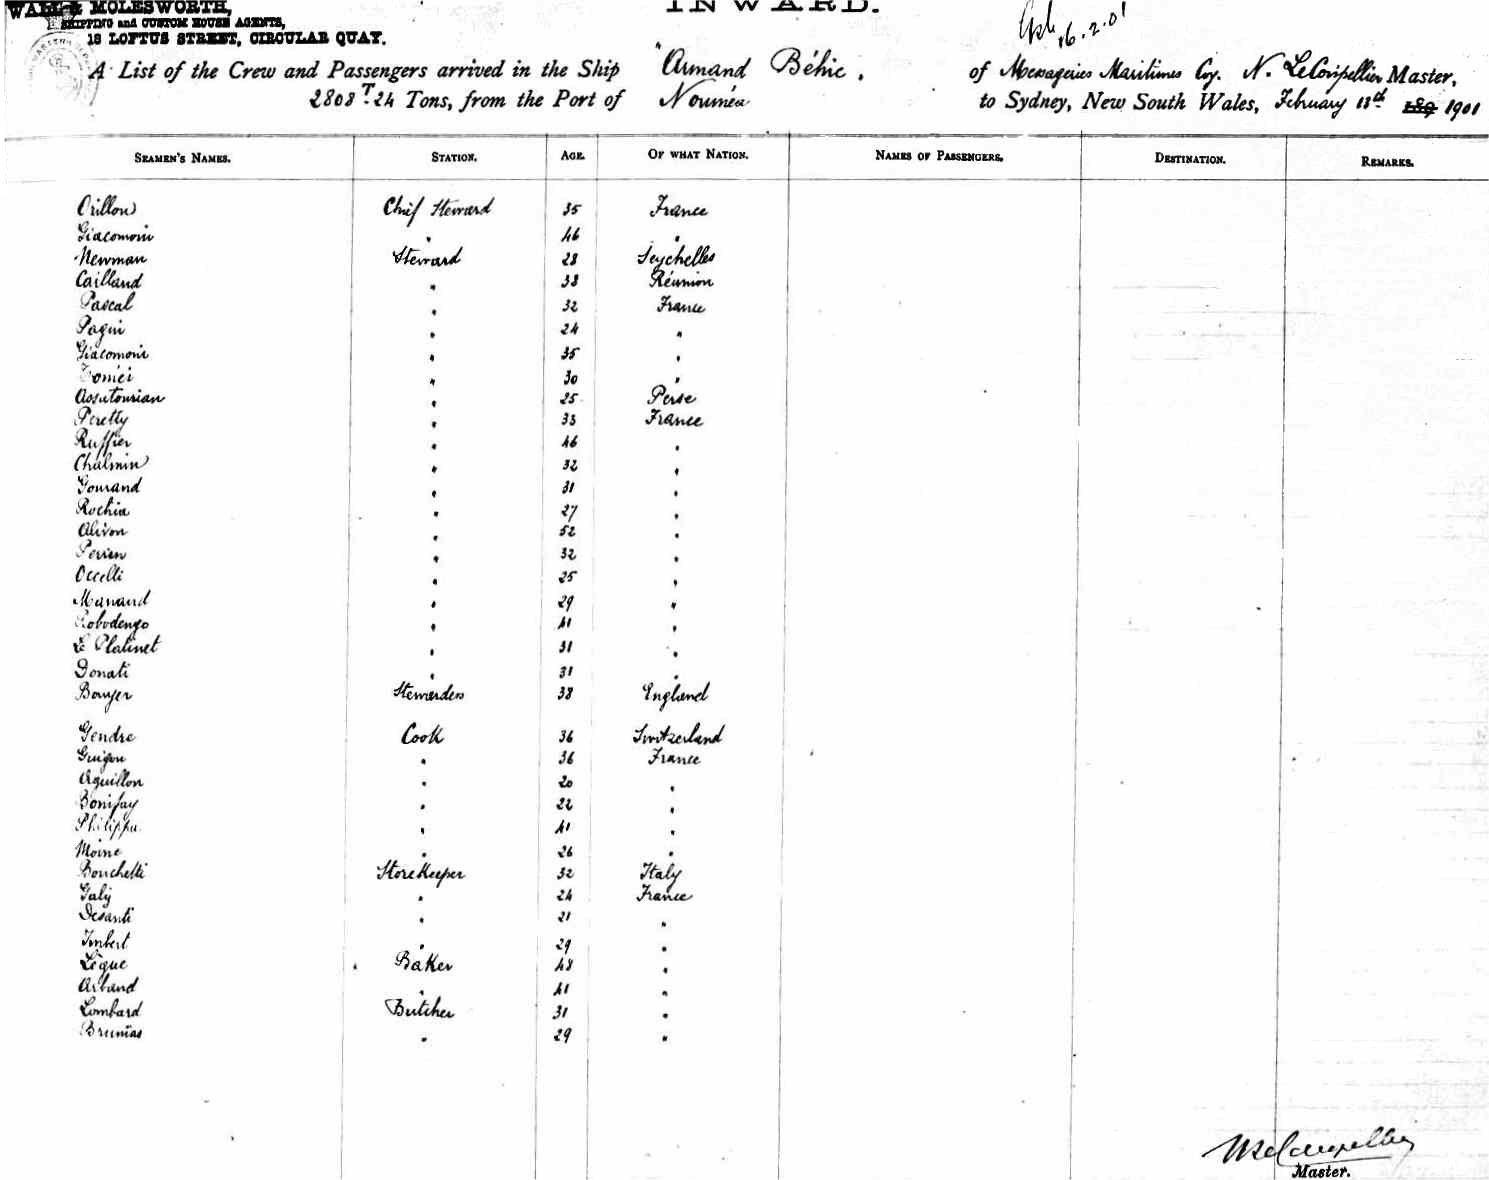 WALL & MOLESWORTH,
SHIPPING and CUSTOM HOUSE AGENTS,
18 LOFTUS STREET, CIRCULAR QUAY.
INWARD.
16.2.01
A List of the Crew and Passengers arrived in the Ship Armand Béhic, of Messageries Maritimes Coy. N. Master,
2808 T. 24 Tons, from the Port of Nouméa to Sydney, New South Wales, February 13th 189 1901
SEAMEN'S NAMES. STATION. AGE. OF WHAT NATION. NAMES OF PASSENGERS. DESTINATION. REMARKS.
Orillon Chief Steward 35 France
Giacomoni " 46 "
Newman Steward 28 Seychelles
Cailland " 38 Réunion
Pascal " 32 France
Pagni " 24 "
Giacomoni " 35 "
Tomei " 30 "
Assatourian " 25 Perse
Peretty " 33 France
Ruffier " 46 "
Chalmin " 32 "
Gourand " 31 "
Rochia " 27 "
Alivon " 52 "
Perien " 32 "
Occelli " 25 "
Manand " 29 "
" 41 "
Le Platinet " 31 "
Donati " 31 "
Bowyer Stewardess 38 England
Gendre Cook 36 Switzerland
Guigou " 36 France
Aguillon " 20 "
Bonifay " 22 "
Philippe " 41 "
Moine " 26 "
Bonchelli StoreKeeper 32 Italy
Galy " 24 France
Desanti " 21 "
Imbert " 29 "
Lègue Baker 48 "
Arband " 41 "
Lombard Butcher 31 "
Brunias " 29 "
Master.